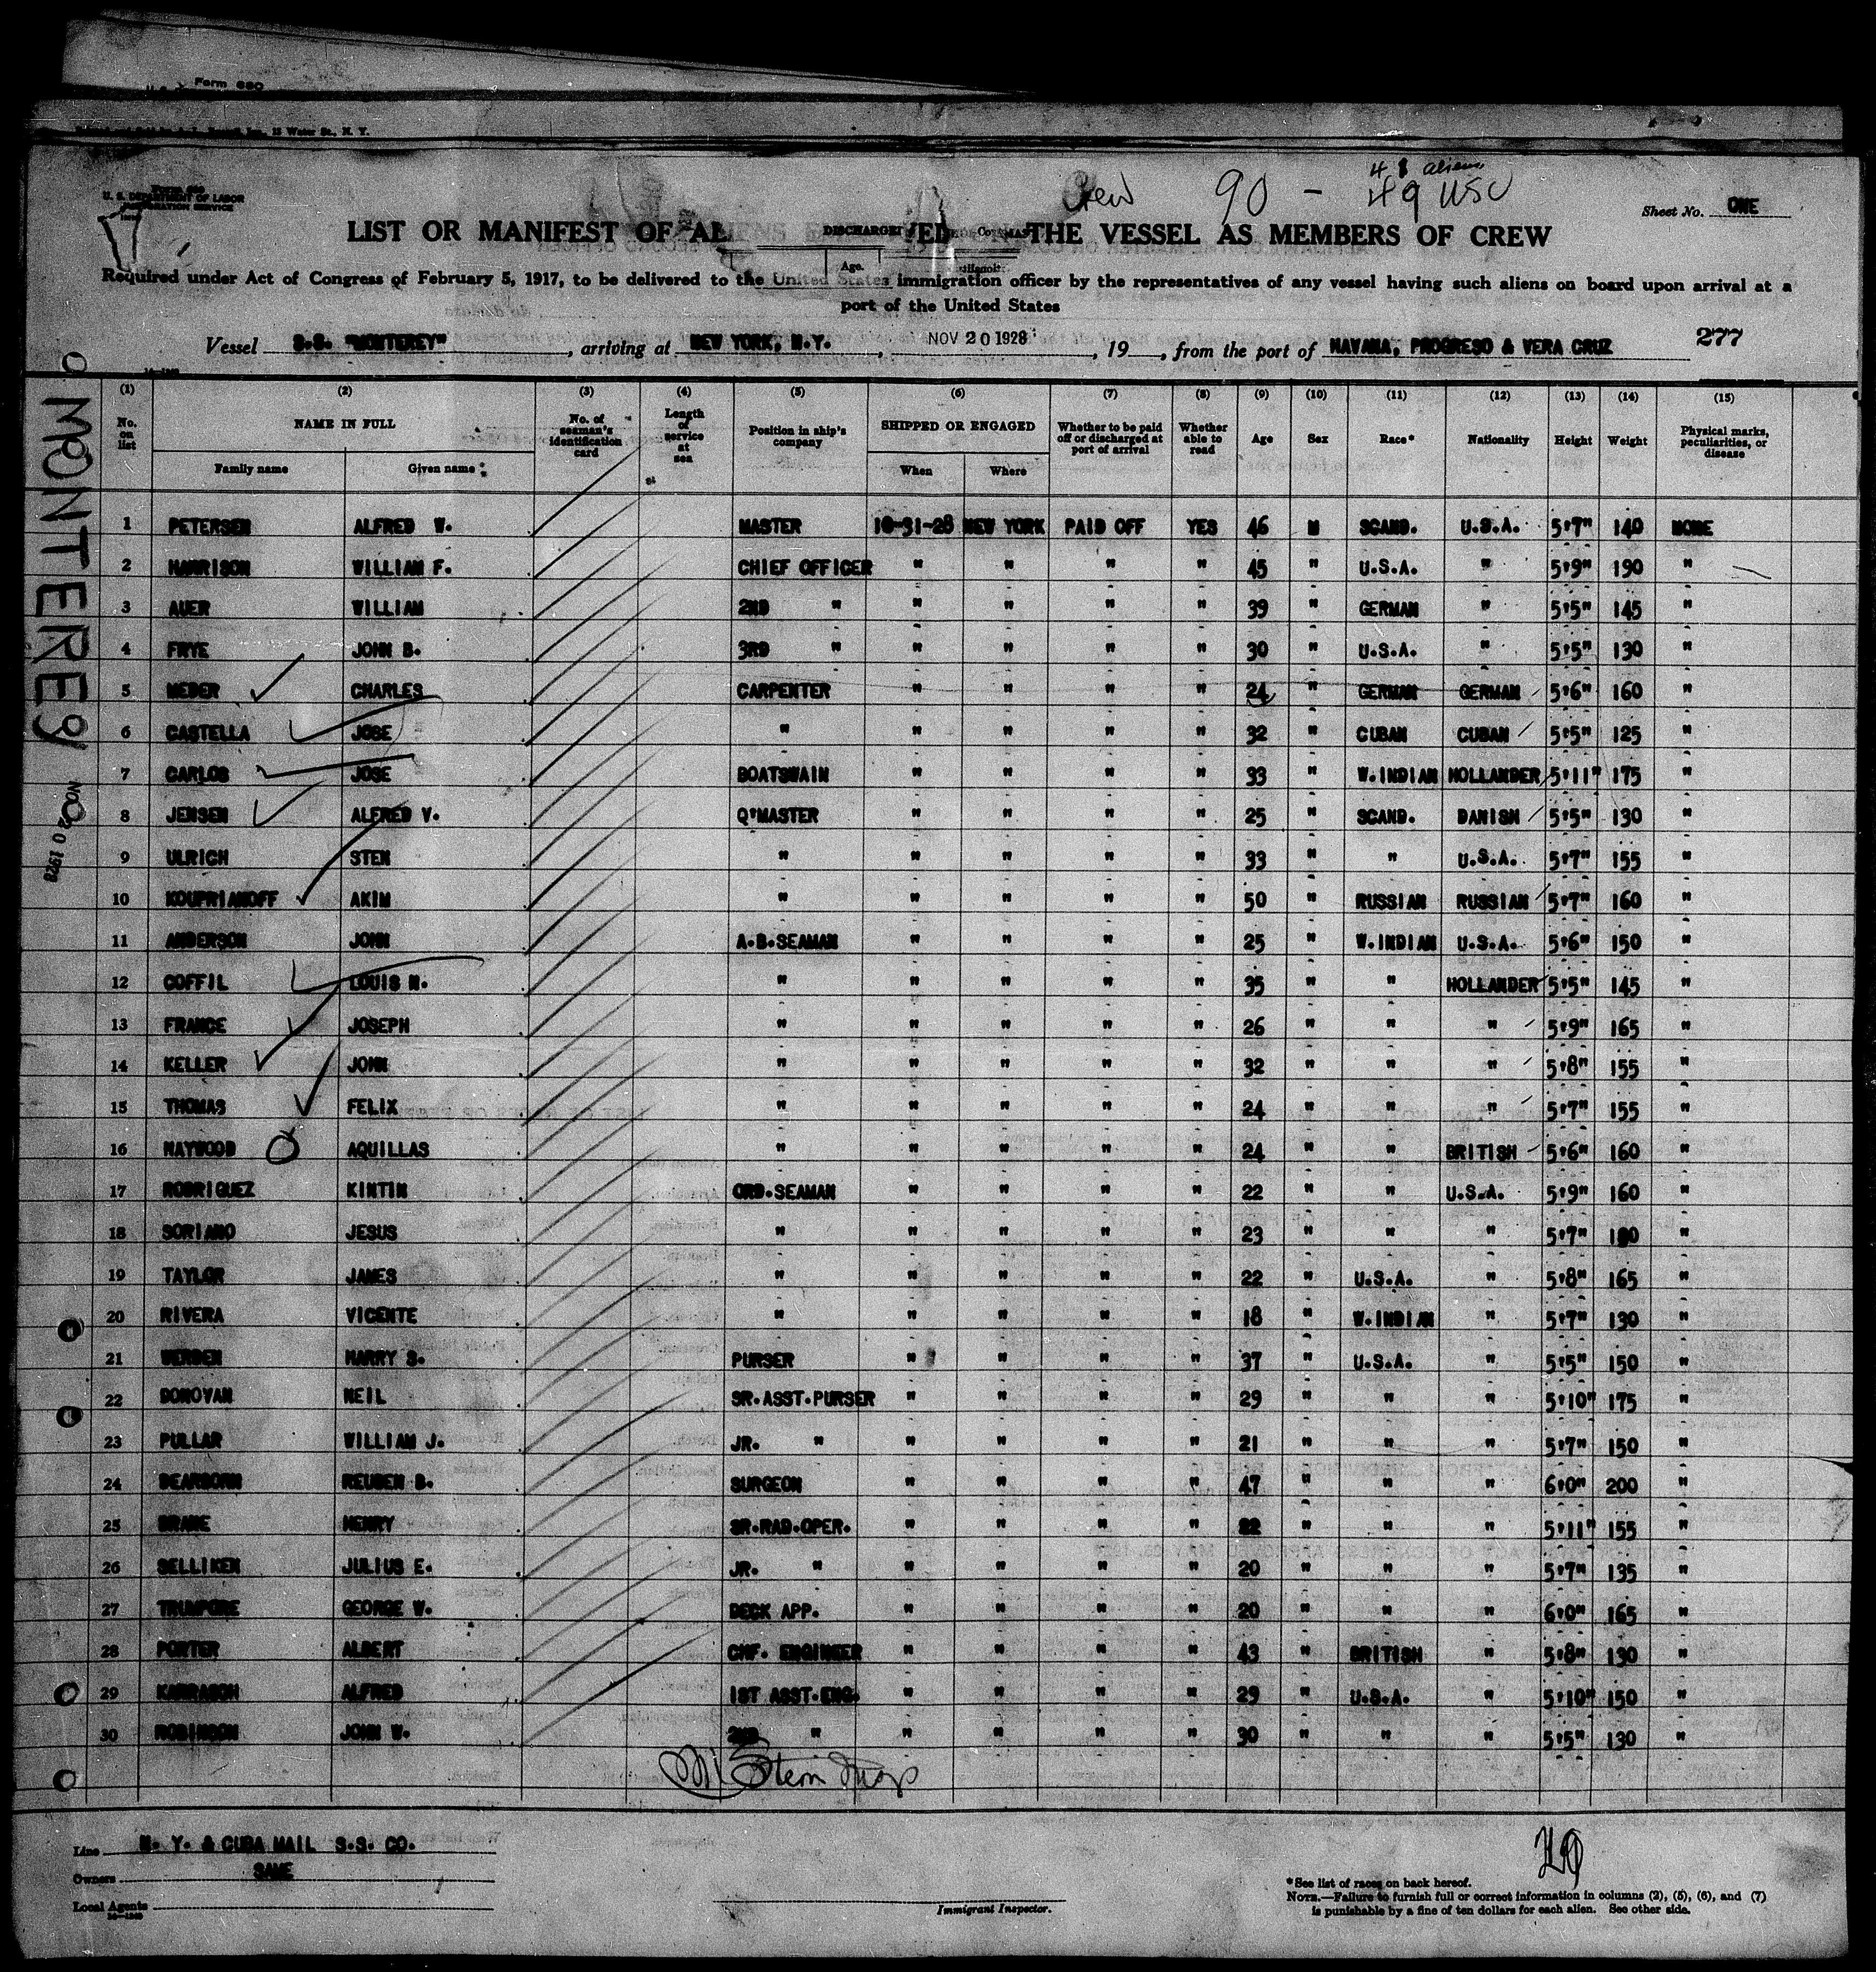 Form 680
15 Water St., N. Y.
Form 680
U. S. DEPARTMENT OF LABOR
IMMIGRATION SERVICE
Crew 90 - 49 USC
41 aliens
Sheet No. ONE
LIST OR MANIFEST OF ALIENS EMPLOYED ON THE VESSEL AS MEMBERS OF CREW
DISCHARGED
Age.
Required under Act of Congress of February 5, 1917, to be delivered to the United States immigration officer by the representatives of any vessel having such aliens on board upon arrival at a
port of the United States
Vessel S.S. "MONTEREY", arriving at NEW YORK, N.Y., NOV 20 1928, 19__, from the port of HAVANA, PROGRESO & VERA CRUZ 277
MONTEREY
NOV 20 1928
(1) (2) (3) (4) (5) (6) (7) (8) (9) (10) (11) (12) (13) (14) (15)
No. on list NAME IN FULL No. of seaman's identification card Length of service at sea Position in ship's company SHIPPED OR ENGAGED Whether to be paid off or discharged at port of arrival Whether able to read Age Sex Race* Nationality Height Weight Physical marks, peculiarities, or disease
Family name Given name When Where
1 PETERSEN ALFRED W. MASTER 10-31-28 NEW YORK PAID OFF YES 46 M SCAND. U.S.A. 5'7" 140 NONE
2 HARRISON WILLIAM F. CHIEF OFFICER " " " " 45 " U.S.A. " 5'9" 190 "
3 AUER WILLIAM 2ND " " " " " 39 " GERMAN " 5'5" 145 "
4 FRYE JOHN B. 3RD " " " " " 30 " U.S.A. " 5'5" 130 "
5 MEDER CHARLES CARPENTER " " " " 24 " GERMAN GERMAN 5'6" 160 "
6 CASTELLA JOSE " " " " " 32 " CUBAN CUBAN 5'5" 125 "
7 CARLOS JOSE BOATSWAIN " " " " 33 " W.INDIAN HOLLANDER 5'11" 175 "
8 JENSEN ALFRED V. Q'MASTER " " " " 25 " SCAND. DANISH 5'5" 130 "
9 ULRICH STEN " " " " " 33 " " U.S.A. 5'7" 155 "
10 KOUPRIANOFF AKIM " " " " " 50 " RUSSIAN RUSSIAN 5'7" 160 "
11 ANDERSON JOHN A.B.SEAMAN " " " " 25 " W.INDIAN U.S.A. 5'6" 150 "
12 COFFIL LOUIS N. " " " " " 35 " " HOLLANDER 5'5" 145 "
13 FRANCE JOSEPH " " " " " 26 " " " 5'9" 165 "
14 KELLER JOHN " " " " " 32 " " " 5'8" 155 "
15 THOMAS FELIX " " " " " 24 " " " 5'7" 155 "
16 HAYWOOD AQUILLAS " " " " " 24 " " BRITISH 5'6" 160 "
17 RODRIGUEZ KINTIN ORD.SEAMAN " " " " 22 " " U.S.A. 5'9" 160 "
18 SORIANO JESUS " " " " " 23 " " " 5'7" "
19 TAYLOR JAMES " " " " " 22 " U.S.A. " 5'8" 165 "
20 RIVERA VICENTE " " " " " 18 " W.INDIAN " 5'7" 130 "
21 WERDEN HARRY S. PURSER " " " " 37 " U.S.A. " 5'5" 150 "
22 DONOVAN NEIL SR.ASST.PURSER " " " " 29 " " " 5'10" 175 "
23 PULLAR WILLIAM J. JR. " " " " " 21 " " " 5'7" 150 "
24 DEARBORN REUBEN B. SURGEON " " " " 47 " " " 6'0" 200 "
25 DRANE HENRY SR.RAD.OPER. " " " " 22 " " " 5'11" 155 "
26 SELLIKEN JULIUS E. JR. " " " " " 20 " " " 5'7" 135 "
27 TRUMPORE GEORGE W. DECK APP. " " " " 20 " " " 6'0" 165 "
28 PORTER ALBERT CHF. ENGINEER " " " " 43 " BRITISH " 5'8" 130 "
29 KARRASCH ALFRED 1ST ASST.ENG. " " " " 29 " U.S.A. " 5'10" 150 "
30 ROBINSON JOHN W. 2ND " " " " " 30 " " " 5'5" 130 "
Stein
Line N. Y. & CUBA MAIL S.S. CO.
Owners SAME
Local Agents
Immigrant Inspector.
*See list of races on back hereof.
NOTE.—Failure to furnish full or correct information in columns (2), (5), (6), and (7)
is punishable by a fine of ten dollars for each alien. See other side.